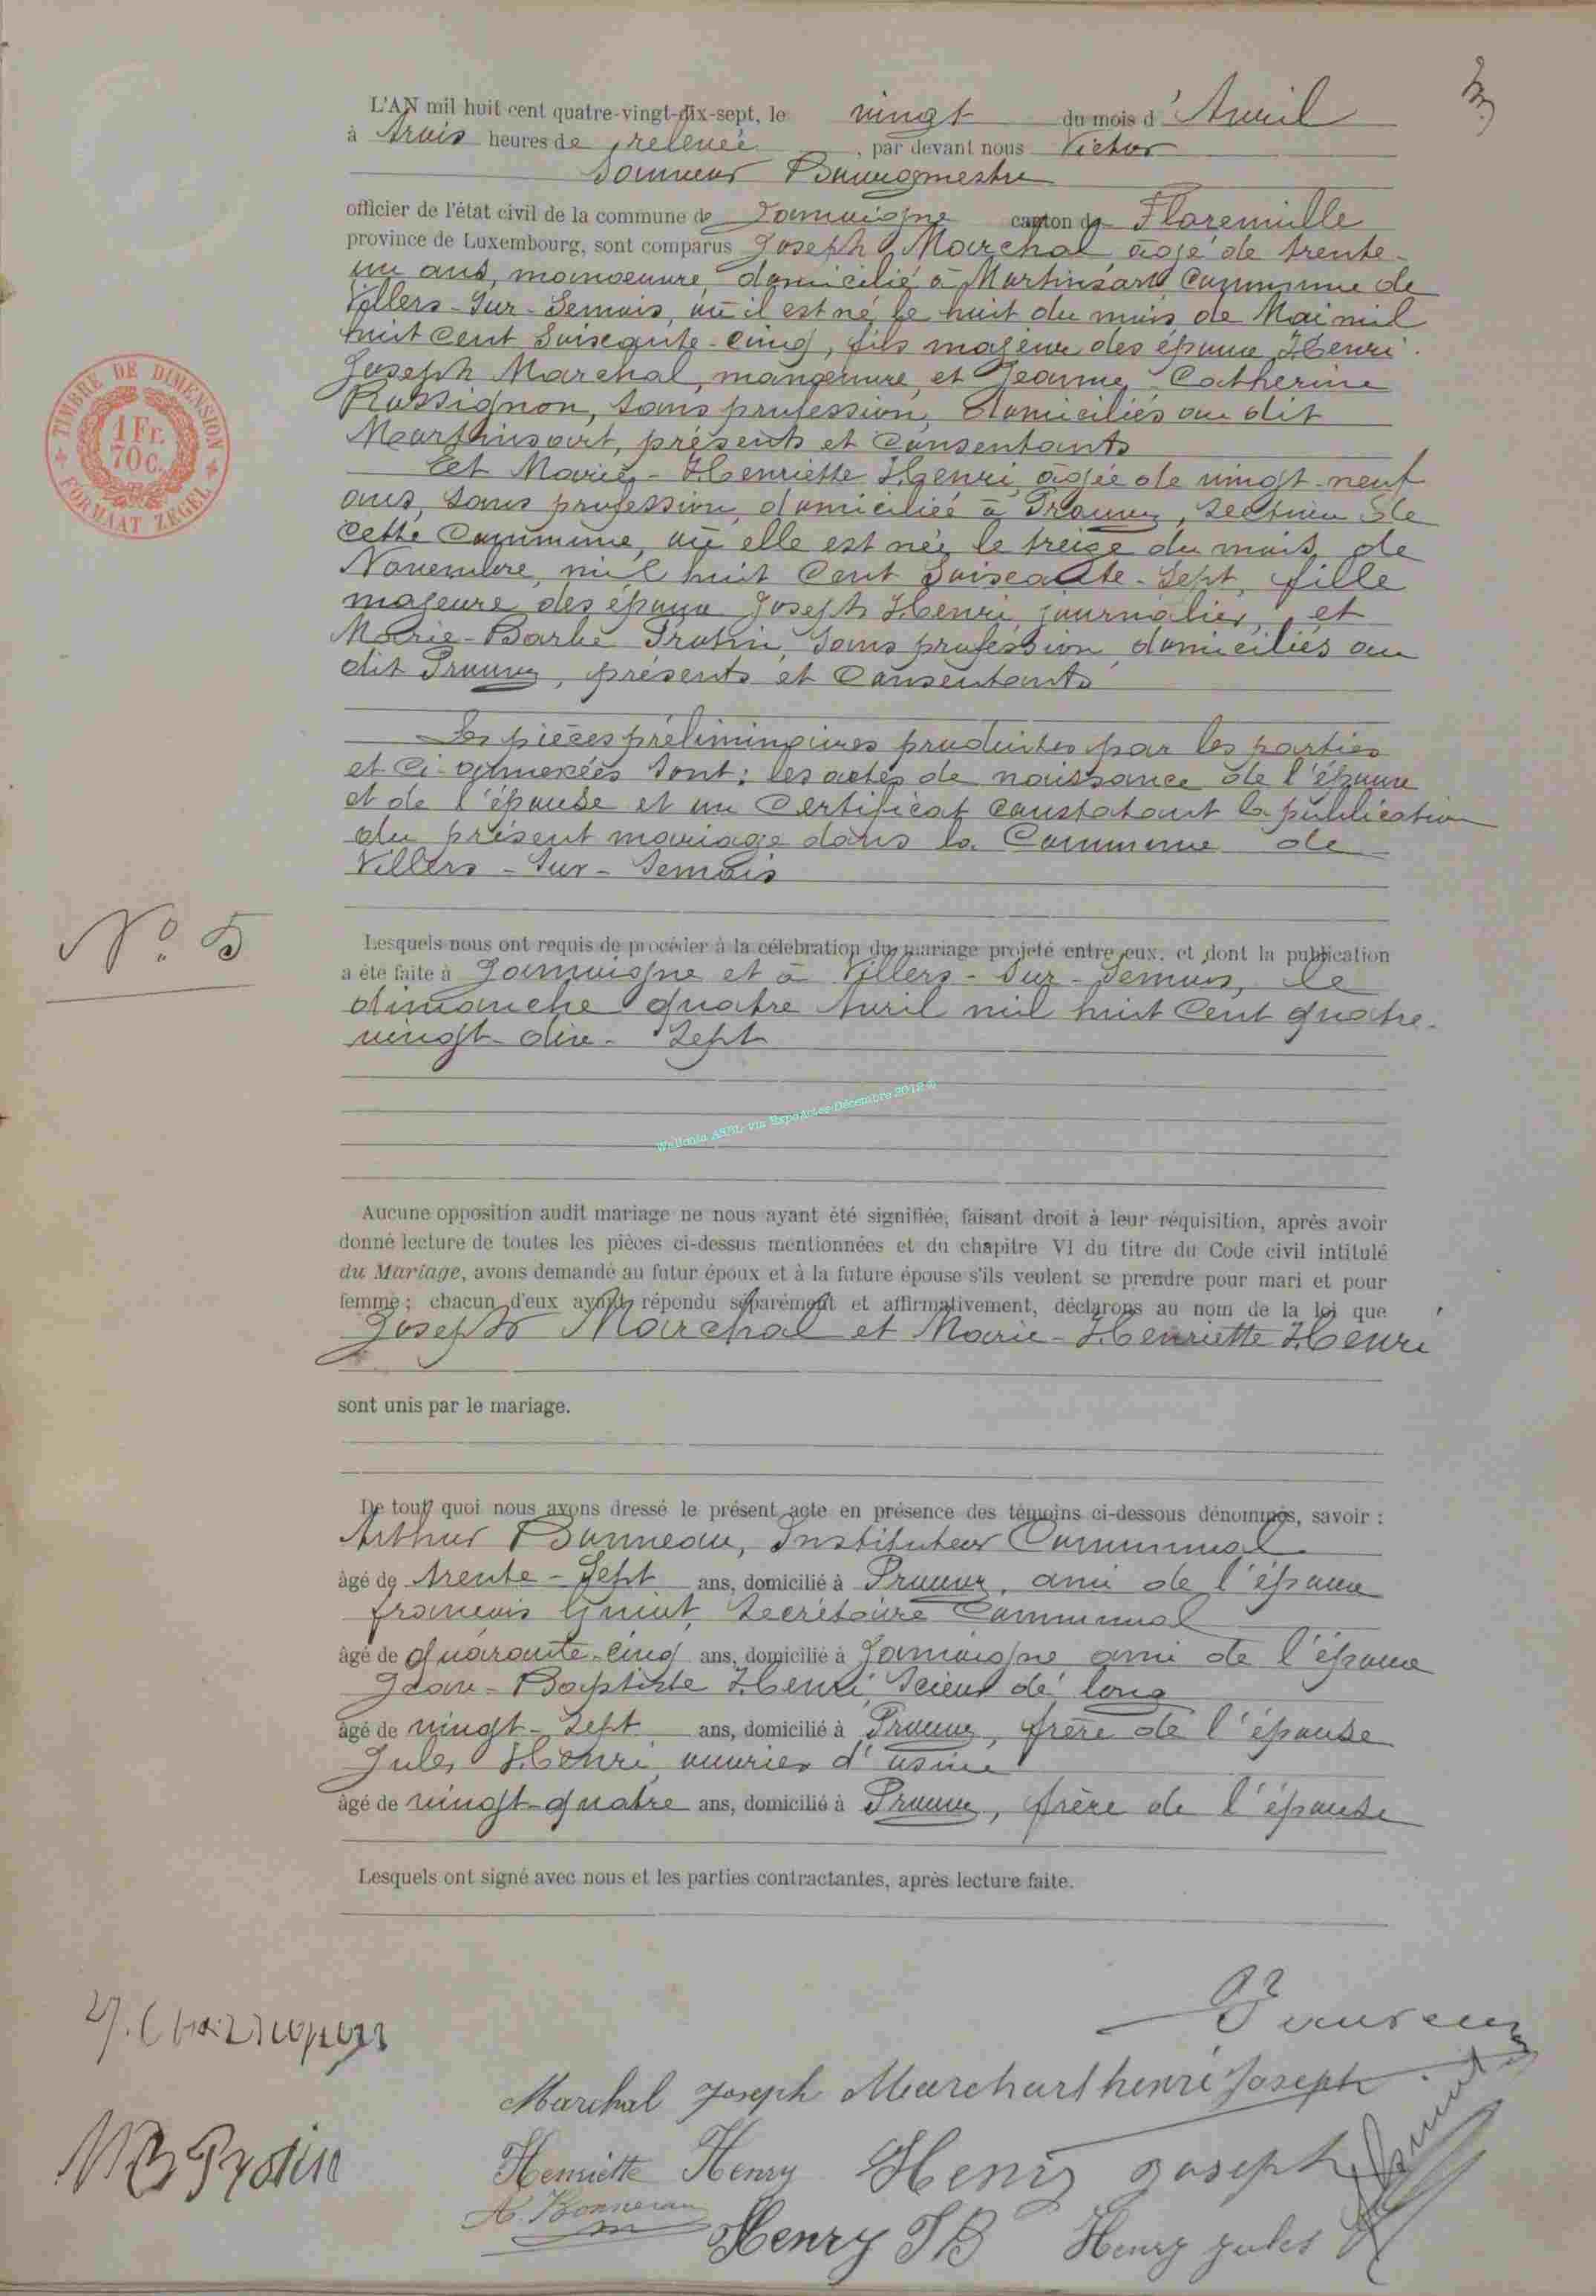 L'AN mil huit cent quatre-vingt-dix-sept, le vingt du mois d'Avril
à trois heures de relevée, par devant nous Victor
Bourgmestre
officier de l'état civil de la commune de Jamoigne canton de Florenville
province de Luxembourg, sont comparus Joseph Marchal, âgé de trente-
un ans, manoeuvre, domicilié à Martinsart Commune de
Villers-Sur-Semois, où il est né, le huit du mois de Mai mil
huit Cent Soixante-Cinq, fils majeur des époux Henri
Joseph Marchal, manoeuvre, et Jeanne-Catherine
Rossignon, sans profession, domiciliés au dit
Martinsart, présents et Consentants
Et Marie-Henriette Henri, âgée de vingt-neuf
ans, sans profession, domiciliée à Prouvy, Section de
cette Commune, où elle est née, le treize du mois de
Novembre, mil huit Cent Soixante-Sept, fille
majeure des époux Joseph Henri, journalier, et
Marie-Barbe Protin, sans profession, domiciliés au
dit Prouvy, présents et Consentants
Les pièces préliminaires produites par les parties
et Ci-annexées sont: les actes de naissance de l'époux
et de l'épouse et un Certificat Constatant la publication
du présent mariage dans la Commune de
Villers-Sur-Semois
N° 5
Lesquels nous ont requis de procéder à la célébration du mariage projeté entre eux, et dont la publication
a été faite à Jamoigne et à Villers-Sur-Semois, le
dimanche quatre Avril mil huit Cent quatre-
vingt-dix-Sept
Wallonia ASBL via ExpoActes Décembre 2012 ©
Aucune opposition audit mariage ne nous ayant été signifiée, faisant droit à leur réquisition, après avoir
donné lecture de toutes les pièces ci-dessus mentionnées et du chapitre VI du titre du Code civil intitulé
du Mariage, avons demandé au futur époux et à la future épouse s'ils veulent se prendre pour mari et pour
femme; chacun d'eux ayant répondu séparément et affirmativement, déclarons au nom de la loi que
Joseph Marchal et Marie-Henriette Henri
sont unis par le mariage.
De tout quoi nous avons dressé le présent acte en présence des témoins ci-dessous dénommés, savoir :
Arthur Bonneau, Instituteur Communal
âgé de trente-Sept ans, domicilié à Prouvy, ami de l'époux
françois Secrétaire Communal
âgé de quarante-cinq ans, domicilié à Jamoigne ami de l'époux
Jean-Baptiste Henri, Scieur de long
âgé de vingt-Sept ans, domicilié à Prouvy, frère de l'épouse
Jules Henri, ouvrier d'usine
âgé de vingt-quatre ans, domicilié à Prouvy, frère de l'épouse
Lesquels ont signé avec nous et les parties contractantes, après lecture faite.
Marchal Joseph Marchal henri Joseph
MB Protin
Henriette Henry Henry Joseph
A. Bonneau
Henry JB Henry Jules
TIMBRE DE DIMENSION
1 Fr.
70 c.
FORMAAT ZEGEL